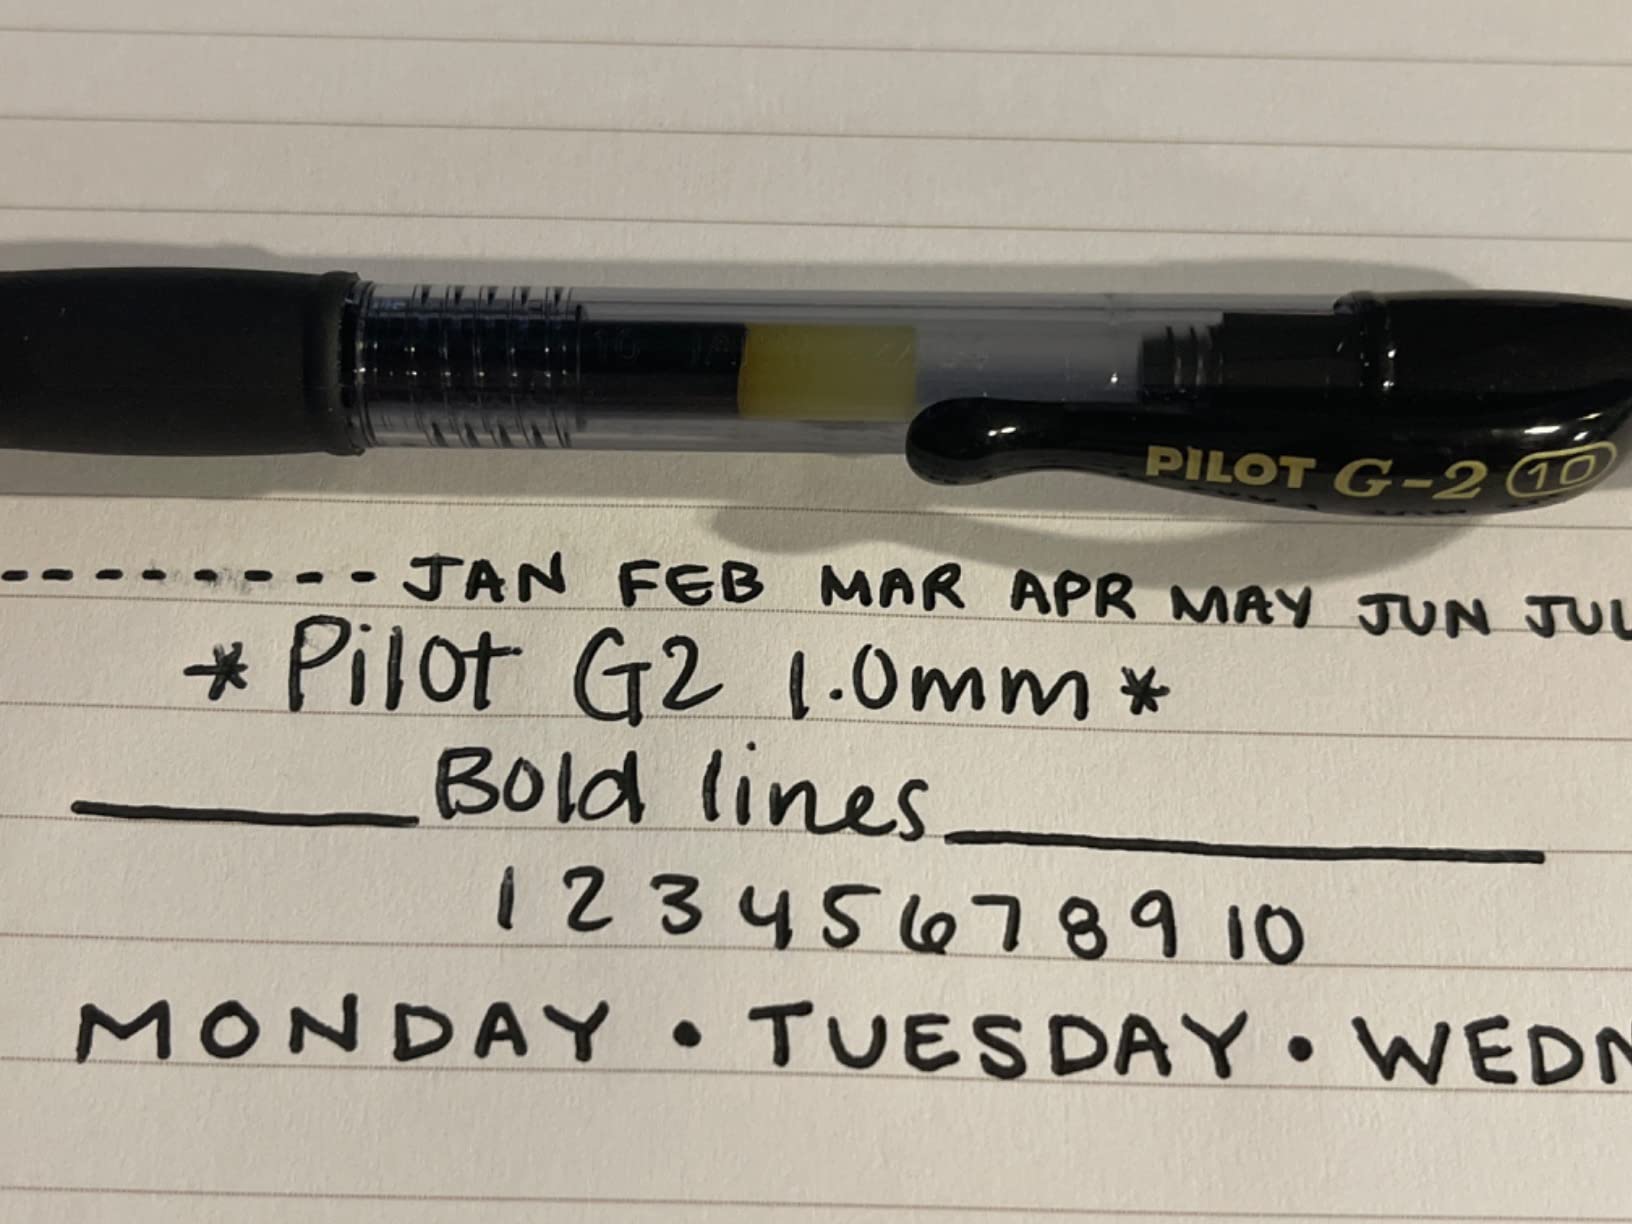 PILOT G-2 10
--------- JAN FEB MAR APR MAY JUN JUL
*Pilot G2 1.0mm*
Bold lines
1 2 3 4 5 6 7 8 9 10
MONDAY • TUESDAY • WEDN